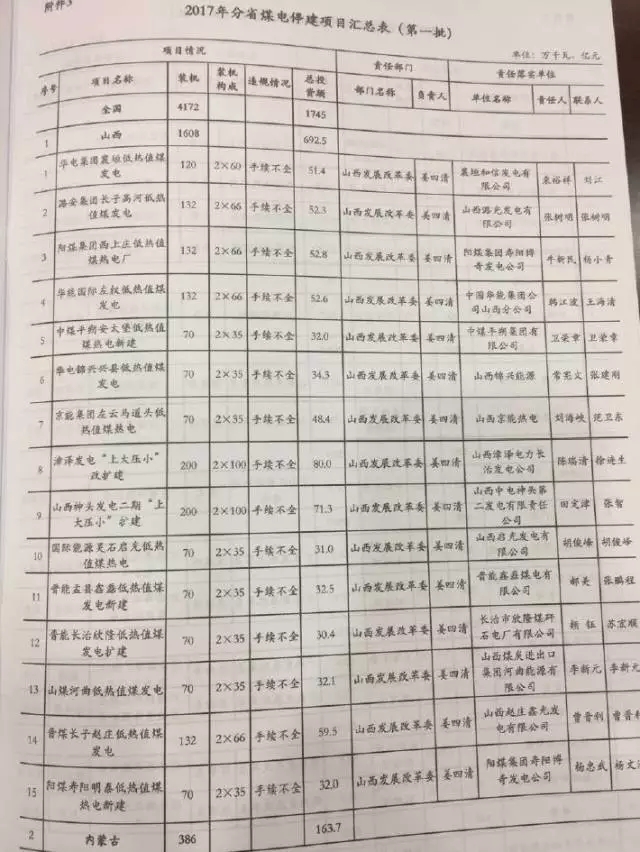 附件3
2017年分省煤电停建项目汇总表（第一批）
单位：万千瓦、亿元
项目情况 责任部门 责任落实单位
序号 项目名称 装机 装机构成 违规情况 总投资额 部门名称 负责人 单位名称 责任人 联系人
全国 4172 1745
1 山西 1608 692.5
1 华电集团襄垣低热值煤发电 120 2×60 手续不全 51.4 山西发展改革委 姜四清 襄垣和信发电有限公司 袁裕祥 刘江
2 潞安集团长子高河低热值煤发电 132 2×66 手续不全 52.3 山西发展改革委 姜四清 山西潞光发电有限公司 张树明 张树明
3 阳煤集团西上庄低热值煤热电厂 132 2×66 手续不全 52.8 山西发展改革委 姜四清 阳煤集团寿阳博奇发电公司 牛新民 杨小青
4 华能国际左权低热值煤发电 132 2×66 手续不全 52.6 山西发展改革委 姜四清 中国华能集团公司山西分公司 韩江波 王海清
5 中煤平朔安太堡低热值煤热电新建 70 2×35 手续不全 32.0 山西发展改革委 姜四清 中煤平朔集团有限公司 卫荣章 卫荣章
6 华电锦兴兴县低热值煤发电 70 2×35 手续不全 34.3 山西发展改革委 姜四清 山西锦兴能源 常宪文 张建刚
7 京能集团左云马道头低热值煤热电 70 2×35 手续不全 48.4 山西发展改革委 姜四清 山西京能热电 刘海峡 范卫东
8 漳泽发电“上大压小”改扩建 200 2×100 手续不全 80.0 山西发展改革委 姜四清 山西漳泽电力长治发电公司 陈瑞清 徐进生
9 山西神头发电二期“上大压小”扩建 200 2×100 手续不全 71.3 山西发展改革委 姜四清 山西中电神头第二发电有限责任公司 田定津 张智
10 国际能源灵石启光低热值煤热电 70 2×35 手续不全 31.0 山西发展改革委 姜四清 山西启光发电有限公司 胡俊峰 胡俊峰
11 晋能孟县鑫磊低热值煤发电新建 70 2×35 手续不全 32.5 山西发展改革委 姜四清 晋能鑫磊煤电有限公司 郝美 张鹏程
12 晋能长治欣隆低热值煤发电扩建 70 2×35 手续不全 30.4 山西发展改革委 姜四清 长治市欣隆煤矸石电厂有限公司 杨钰 苏宏顺
13 山煤河曲低热值煤发电 70 2×35 手续不全 32.1 山西发展改革委 姜四清 山西煤炭进出口集团河曲能源有限公司 李新元 李新元
14 晋煤长子赵庄低热值煤发电 132 2×66 手续不全 59.5 山西发展改革委 姜四清 山西赵庄鑫光发电有限公司 曹晋利 曹晋利
15 阳煤寿阳明泰低热值煤热电新建 70 2×35 手续不全 32.0 山西发展改革委 姜四清 阳煤集团寿阳博奇发电公司 杨忠武 杨文
2 内蒙古 386 163.7